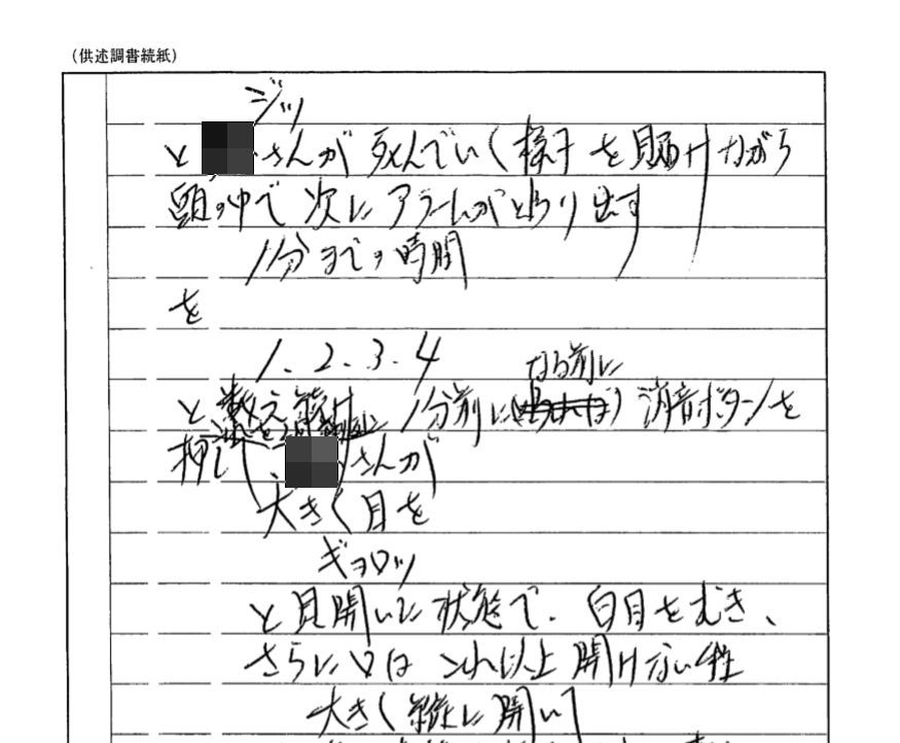 (供述調書続紙)
ジッ
と さんが死んでいく様子を見続けながら
頭の中で次にアラームが鳴り出す
1分までの時間
を
1、2、3、4
なる前に
と数え続け 1分前に 消音ボタンを
押し さんが
大きく目を
ギョロッ
と見開いた状態で、白目をむき、
さらに口はこれ以上開けない程
大きく縦に開い